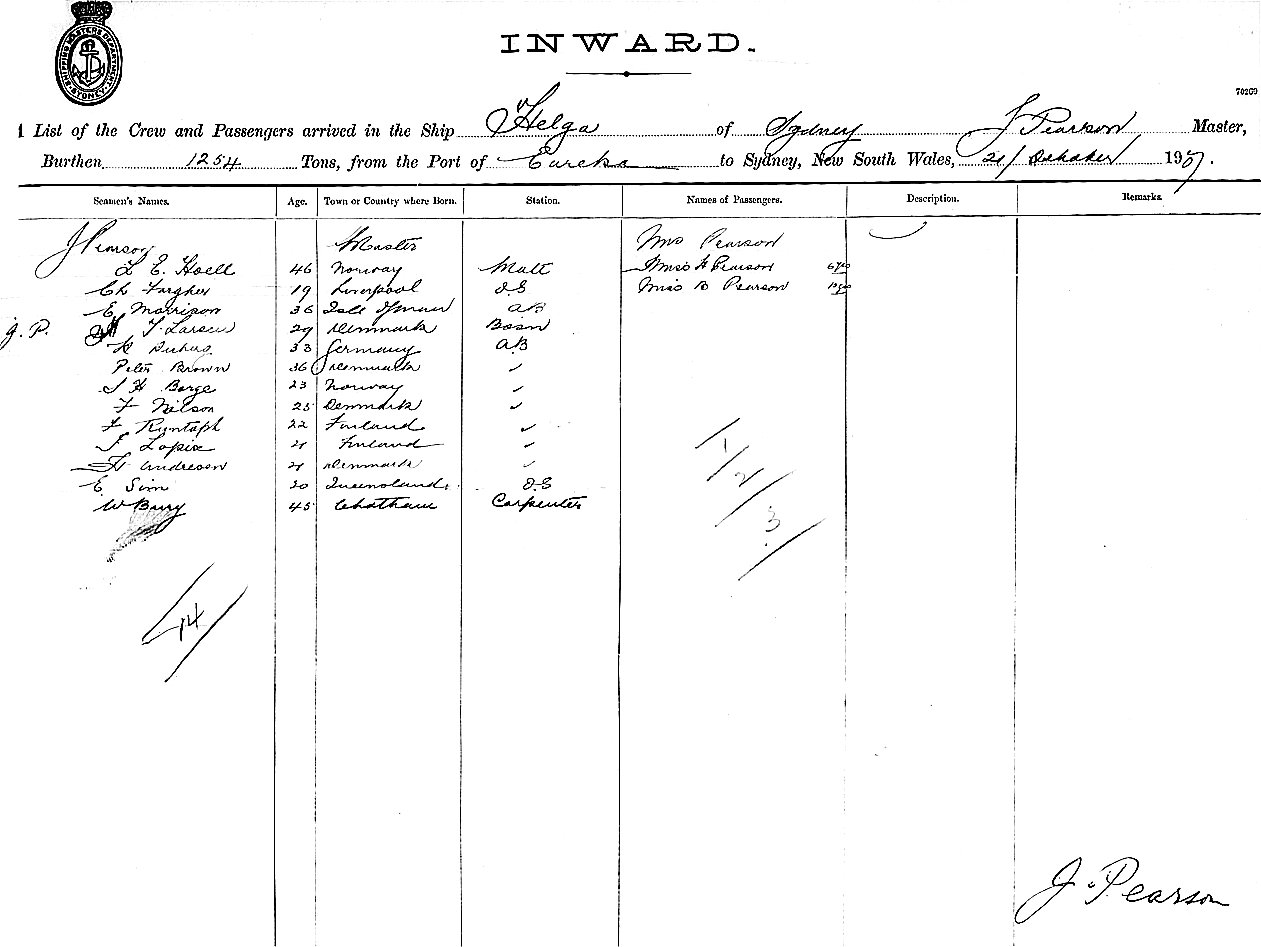 SHIPPING MASTERS DEPARTMENT SYDNEY
INWARD.
70269
List of the Crew and Passengers arrived in the Ship Helga of Sydney J Pearson Master,
Burthen 1254 Tons, from the Port of Eureka to Sydney, New South Wales, 21/ 190
Seamen's Names. Age. Town or Country where Born. Station. Names of Passengers. Description. Remarks.
J Pearson Master Mrs Pearson
L E Hoell 46 Norway Matt Miss H Pearson
Ch Fargher 19 Liverpool O.S Miss B Pearson
E Morrison 36 Isle of man AB
J.P. T. Larsen 29 Denmark Bosn
K 33 Germany AB
Peter Brown 36 Denmark ✓
J H Borge 23 Norway ✓
F Nilson 25 Denmark ✓
F 22 Finland ✓
21 Finland ✓
H Andresen 21 Denmark ✓
E Sim 20 Queensland. O.S
W Barry 45 Chatham Carpenter
1/2/3
14/
J. Pearson